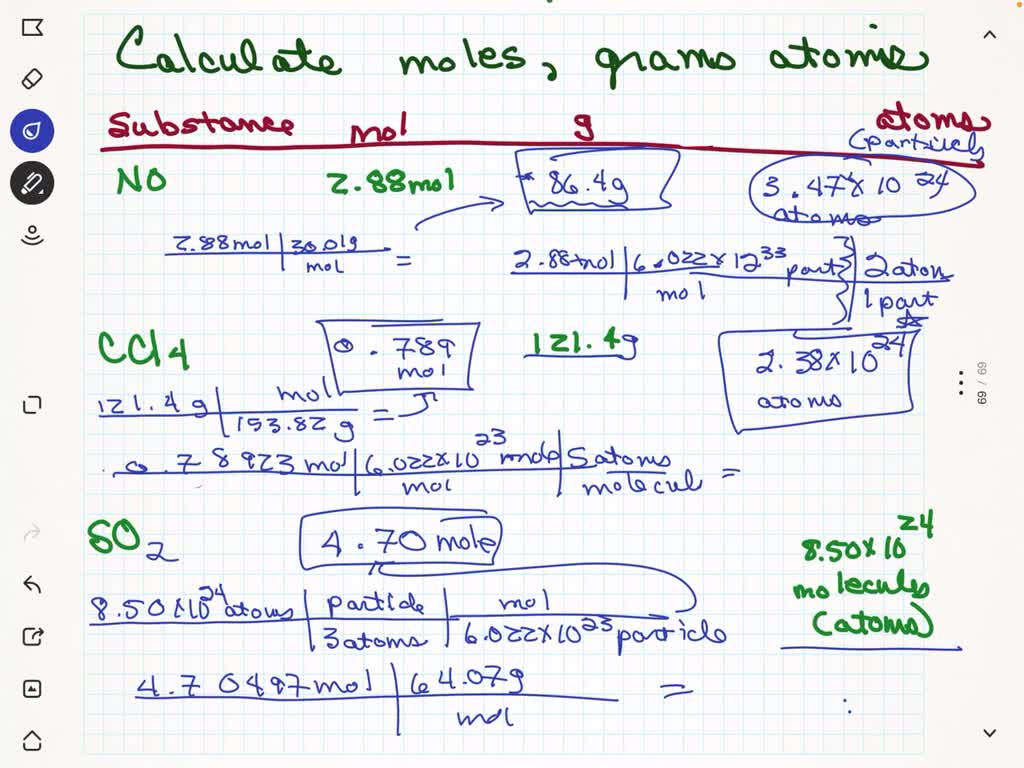 Calculate moles, grams atoms
Substance mol g atoms
(particles
NO 2.88mol 86.4g 3.47x10 24
atoms
2.88mol 30.01g
mol =
2.88mol 6.022x12 33 part 2 atom
mol 1 part
CCl4 0.789 121.4g 2.38x10 24
mol atoms
121.4g mol
153.82g =
0.78923 mol 6.022x10 23 5 atoms
mol molecul =
SO2 4.70 mole 8.50x10 24
molecules
(atoms)
8.50x10 24 atoms particle mol
3 atoms 6.022x10 23 particle
4.70497mol 64.07g
mol =
69 / 69